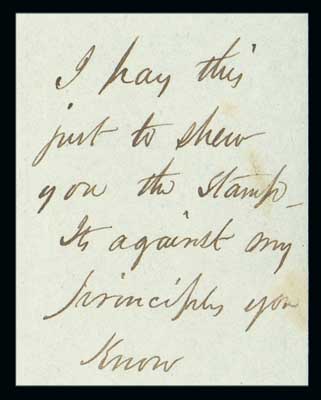 I pay this
just to shew
you the stamp_
Its against my
principles you
know